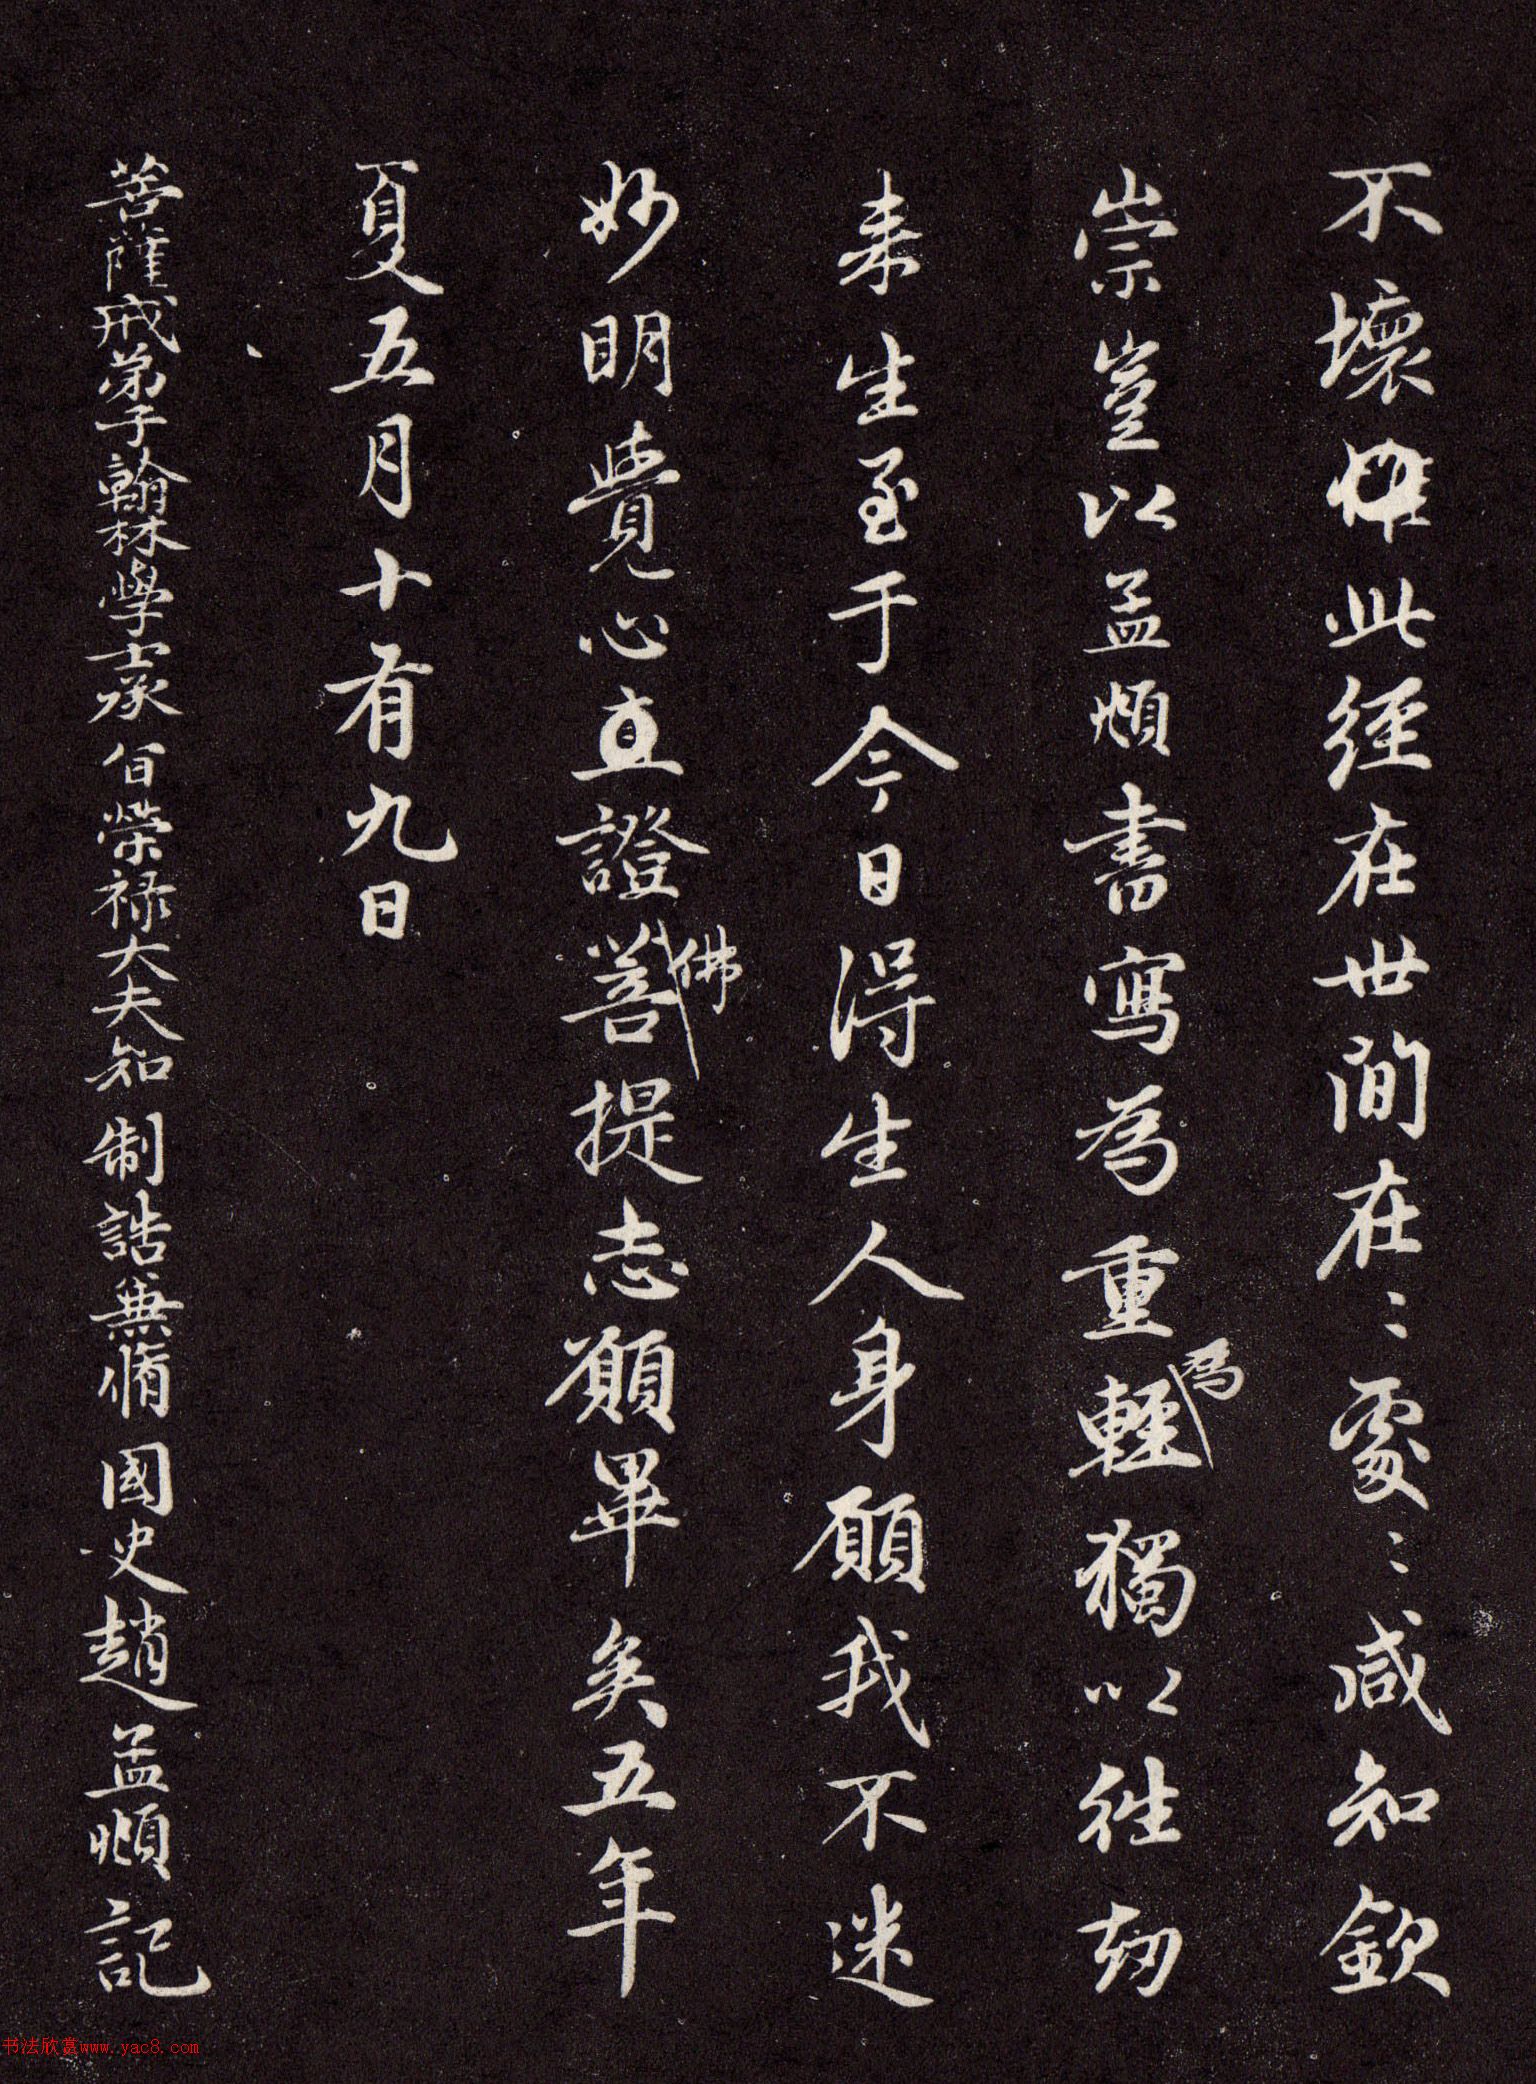 不壞惟此經在世間在〻處〻咸知欽
崇豈以孟頫書寫為重輕為獨以往劫
来生至于今日得生人身願我不迷
妙明覺心直證菩佛提志願畢矣五年
夏五月十有九日
菩薩戒弟子翰林學士承旨榮禄大夫知制誥兼脩國史趙孟頫記
书法欣赏www.yac8.com